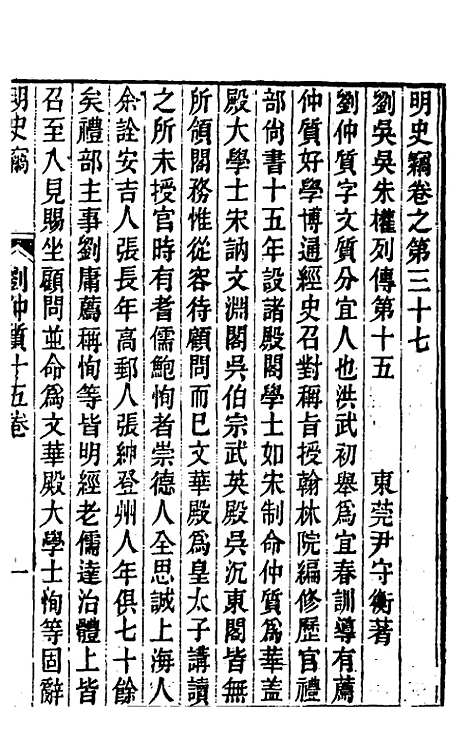 明史竊卷之第三十七
劉吳吳朱權列傳第十五 東莞尹守衡著
劉仲質字文質分宜人也洪武初舉爲宜春訓導有薦
仲質好學博通經史召對稱旨授翰林院編修歷官禮
部尚書十五年設諸殿閣學士如宋制命仲質爲華蓋
殿大學士宋訥文淵閣吳伯宗武英殿吳沉東閣皆無
所領閣務惟從容待顧問而已文華殿爲皇太子講讀
之所未授官時有耆儒鮑恂者崇德人全思誠上海人
余詮安吉人張長年高郵人張紳登州人年俱七十餘
矣禮部主事劉庸薦稱恂等皆明經老儒達治體上皆
召至入見賜坐顧問並命爲文華殿大學士恂等固辭
明史竊 劉仲質十五卷 一